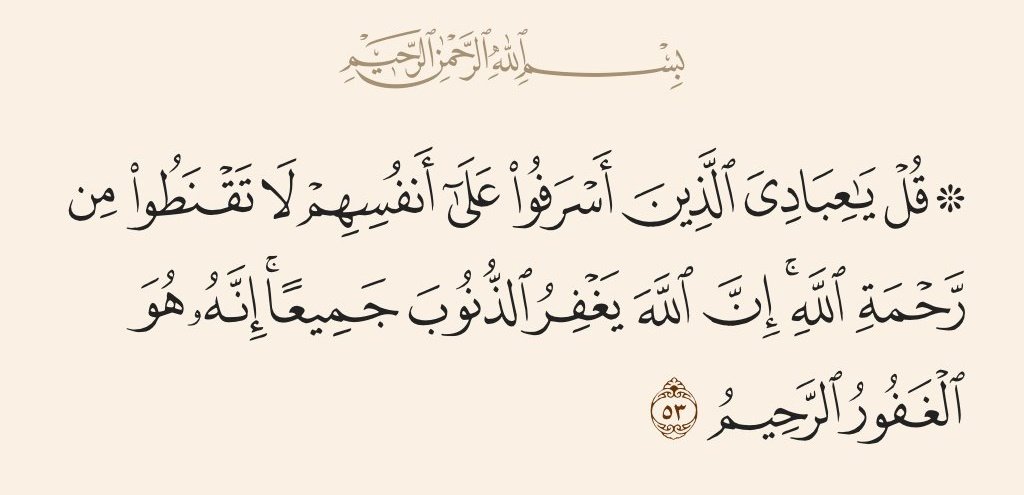 بِسْمِ ٱللَّهِ ٱلرَّحْمَٰنِ ٱلرَّحِيمِ
۞ قُلْ يَـٰعِبَادِىَ ٱلَّذِينَ أَسْرَفُوا۟ عَلَىٰٓ أَنفُسِهِمْ لَا تَقْنَطُوا۟ مِن
رَّحْمَةِ ٱللَّهِ ۚ إِنَّ ٱللَّهَ يَغْفِرُ ٱلذُّنُوبَ جَمِيعًا ۚ إِنَّهُۥ هُوَ
ٱلْغَفُورُ ٱلرَّحِيمُ ٥٣